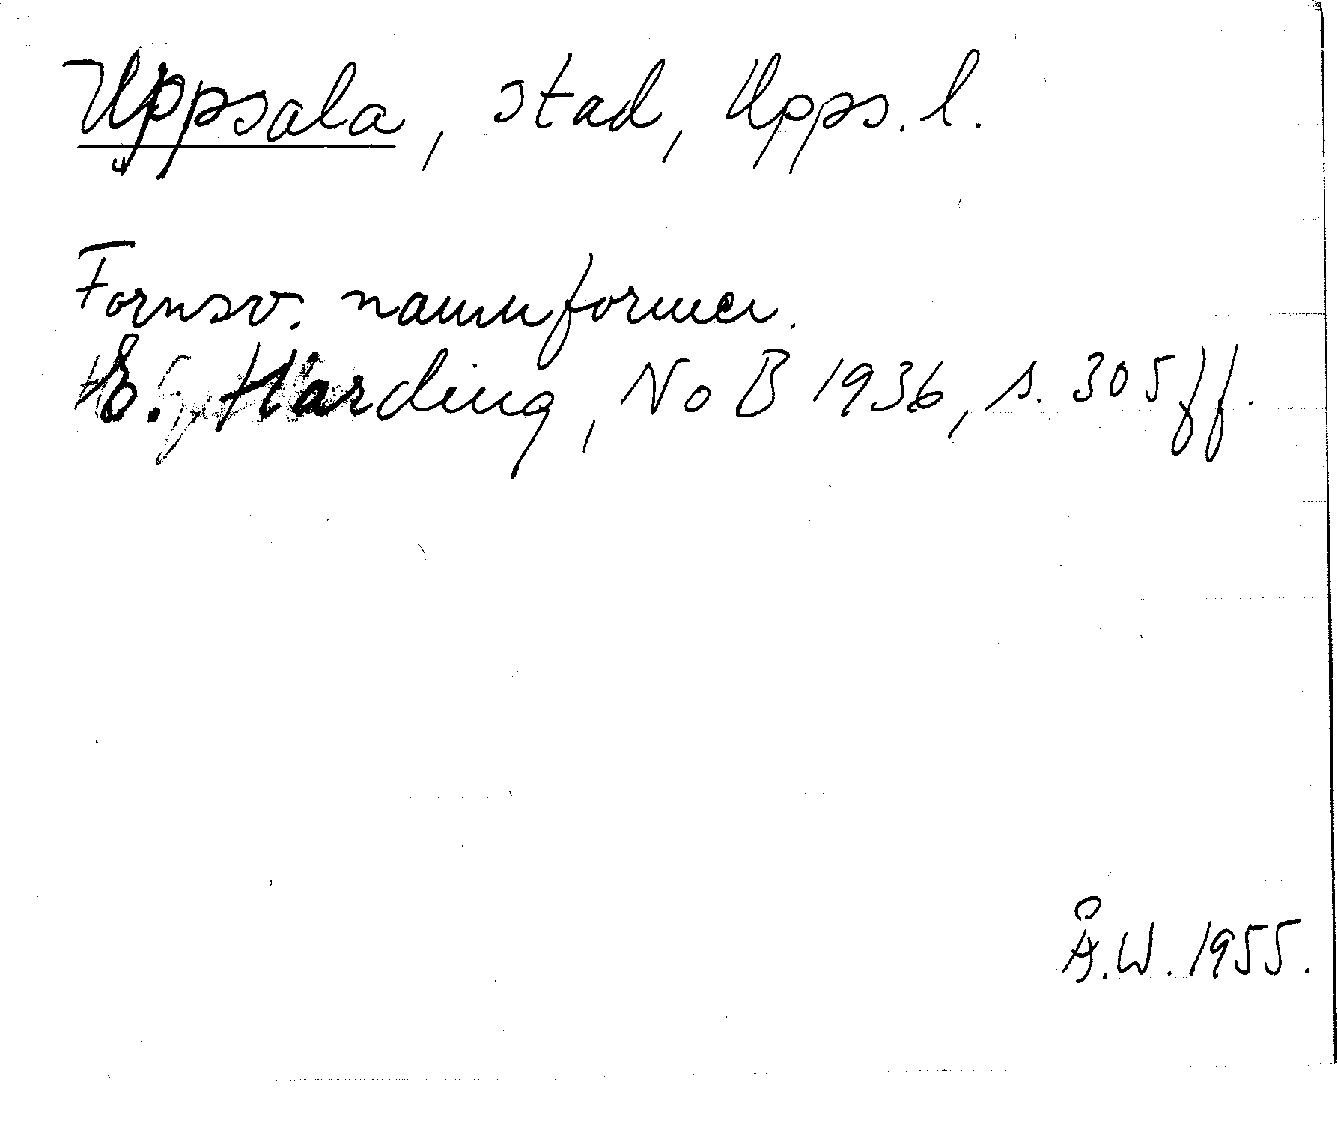 Uppsala, stad, Upps. l.
Fornsv. namnformer.
E. Harding, NoB 1936, s. 305 ff.
Å.W. 1955.